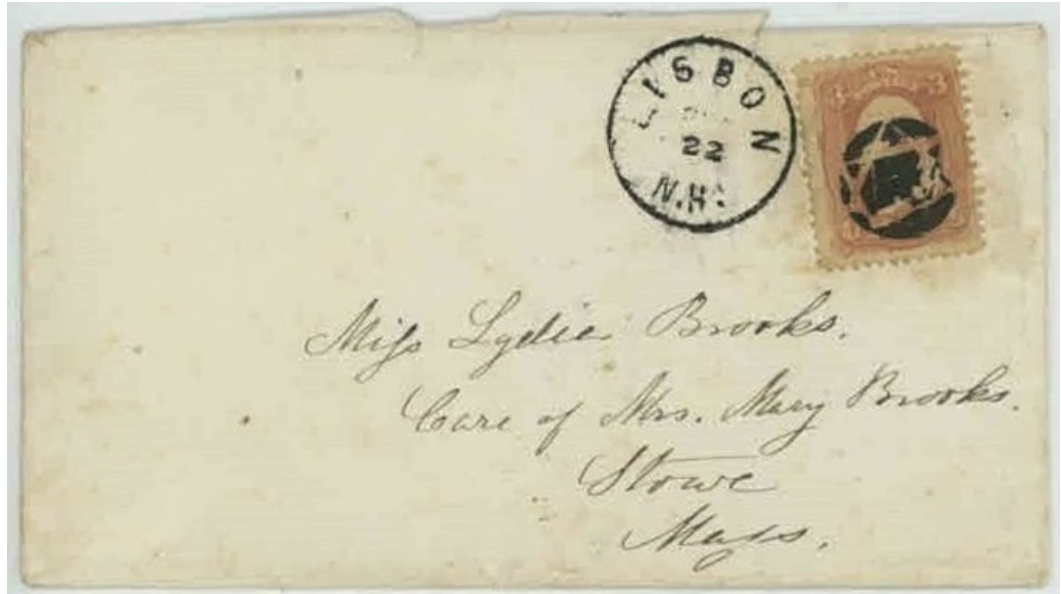 LISBON
22
N.H.
Miss Lydia Brooks.
Care of Mrs. Mary Brooks.
Stowe
Mass.